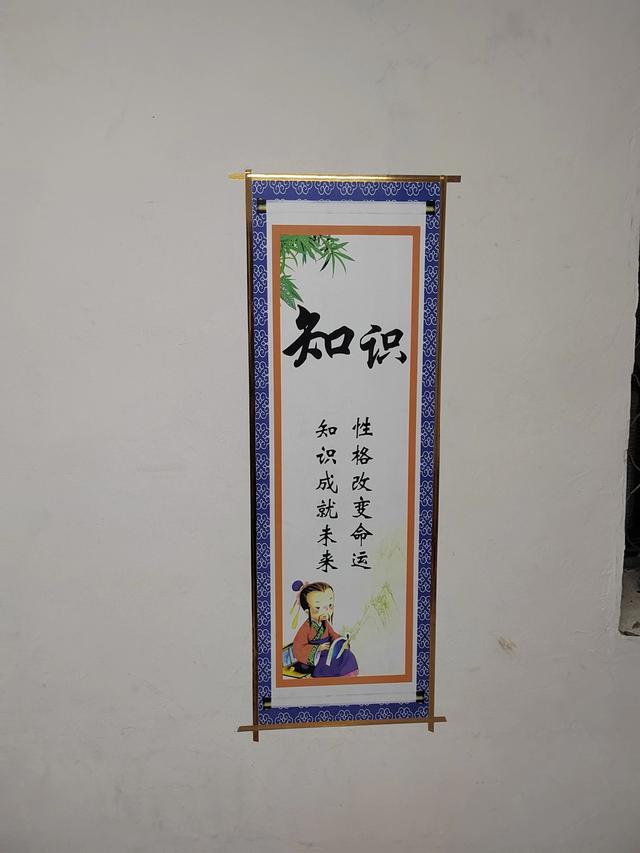 知识
性格改变命运
知识成就未来